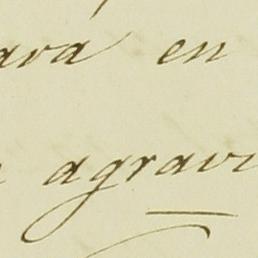 ava en
agravi